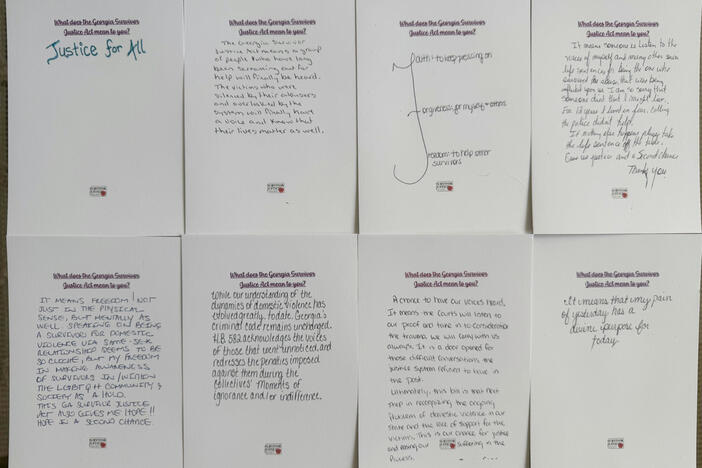 What does the Georgia Survivor
Justice Act mean to you?
Justice for All
What does the Georgia Survivor
Justice Act mean to you?
The Georgia Survivor
Justice Act means a group
of people who have long
been screaming out for
help will finally be heard.
The victims who were
silenced by their abusers
and overlooked by the
system will finally have
a voice and know that
their lives matter as well.
What does the Georgia Survivor
Justice Act mean to you?
Faith: to keep pressing on
Forgiveness: for myself & others
Freedom: to help other
survivors
What does the Georgia Survivor
Justice Act mean to you?
It means someone is listen to the
voices of myself and many other
life sentences for being the one who
survived the abuse that was being
I am so sorry that
someone died that I might live.
For 13 years I lived in fear. Calling
the police didn't help.
If nothing else happens please take
the life sentence off the table.
Give us justice and a Second chance
Thank You
What does the Georgia Survivor
Justice Act mean to you?
IT MEANS FREEDOM! NOT
JUST IN THE PHYSICAL
SENSE, BUT MENTALLY AS
WELL. SPEAKING ON BEING
A SURVIVOR FOR DOMESTIC
VIOLENCE VIA SAME-SEX
RELATIONSHIP SEEMS TO BE
SO CLICHÉ, BUT MY FREEDOM
IN MAKING AWARENESS
OF SURVIVORS IN/WITHIN
THE LGBTQ++ COMMUNITY &
SOCIETY AS A HOLD.
THIS GA SURVIVOR JUSTICE
ACT ALSO GIVES ME HOPE!!
HOPE IN A SECOND CHANCE.
What does the Georgia Survivor
Justice Act mean to you?
While our understanding of the
dynamics of domestic violence has
evolved greatly, to date, Georgia's
criminal code remains unchanged.
H.B. 582 acknowledges the voices
of those that went unnoticed, and
redresses the penalties imposed
against them during the
collectives' moments of
ignorance and/or indifference.
What does the Georgia Survivor
Justice Act mean to you?
A chance to have our voices heard.
It means the Courts will listen to
our proof and take in to consideration
the trauma we will carry with us
always. It is a door opened for
those difficult conversations the
justice system refused to have in
the past.
Ultimately, this bill is that next
step in recognizing the ongoing
problem of domestic violence in our
state and the lack of support for the
victims. This is our chance for justice
and easing our suffering in the
process.
What does the Georgia Survivor
Justice Act mean to you?
It means that my pain
of yesterday has a
divine purpose for
today